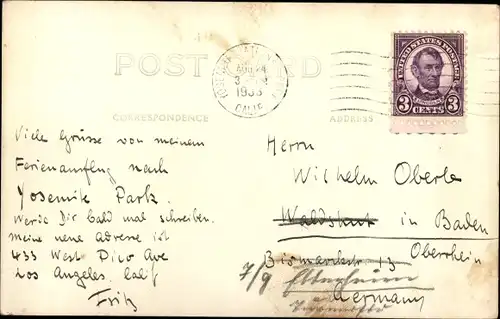 POST CARD
AUG 24
1933
CALIF.
UNITED STATES POSTAGE
3 CENTS 3
CORRESPONDENCE
ADDRESS
Viele Grüsse von meinem
Ferienausflug nach
Yosemite Park.
Werde Dir bald mal schreiben.
meine neue Adresse ist
433 West Pico Ave
Los Angeles, Calif
Fritz
Herrn
Wilhelm Oberle
Waldshut in Baden
Oberrhein
Bismarckstr 13
7/9
Germany